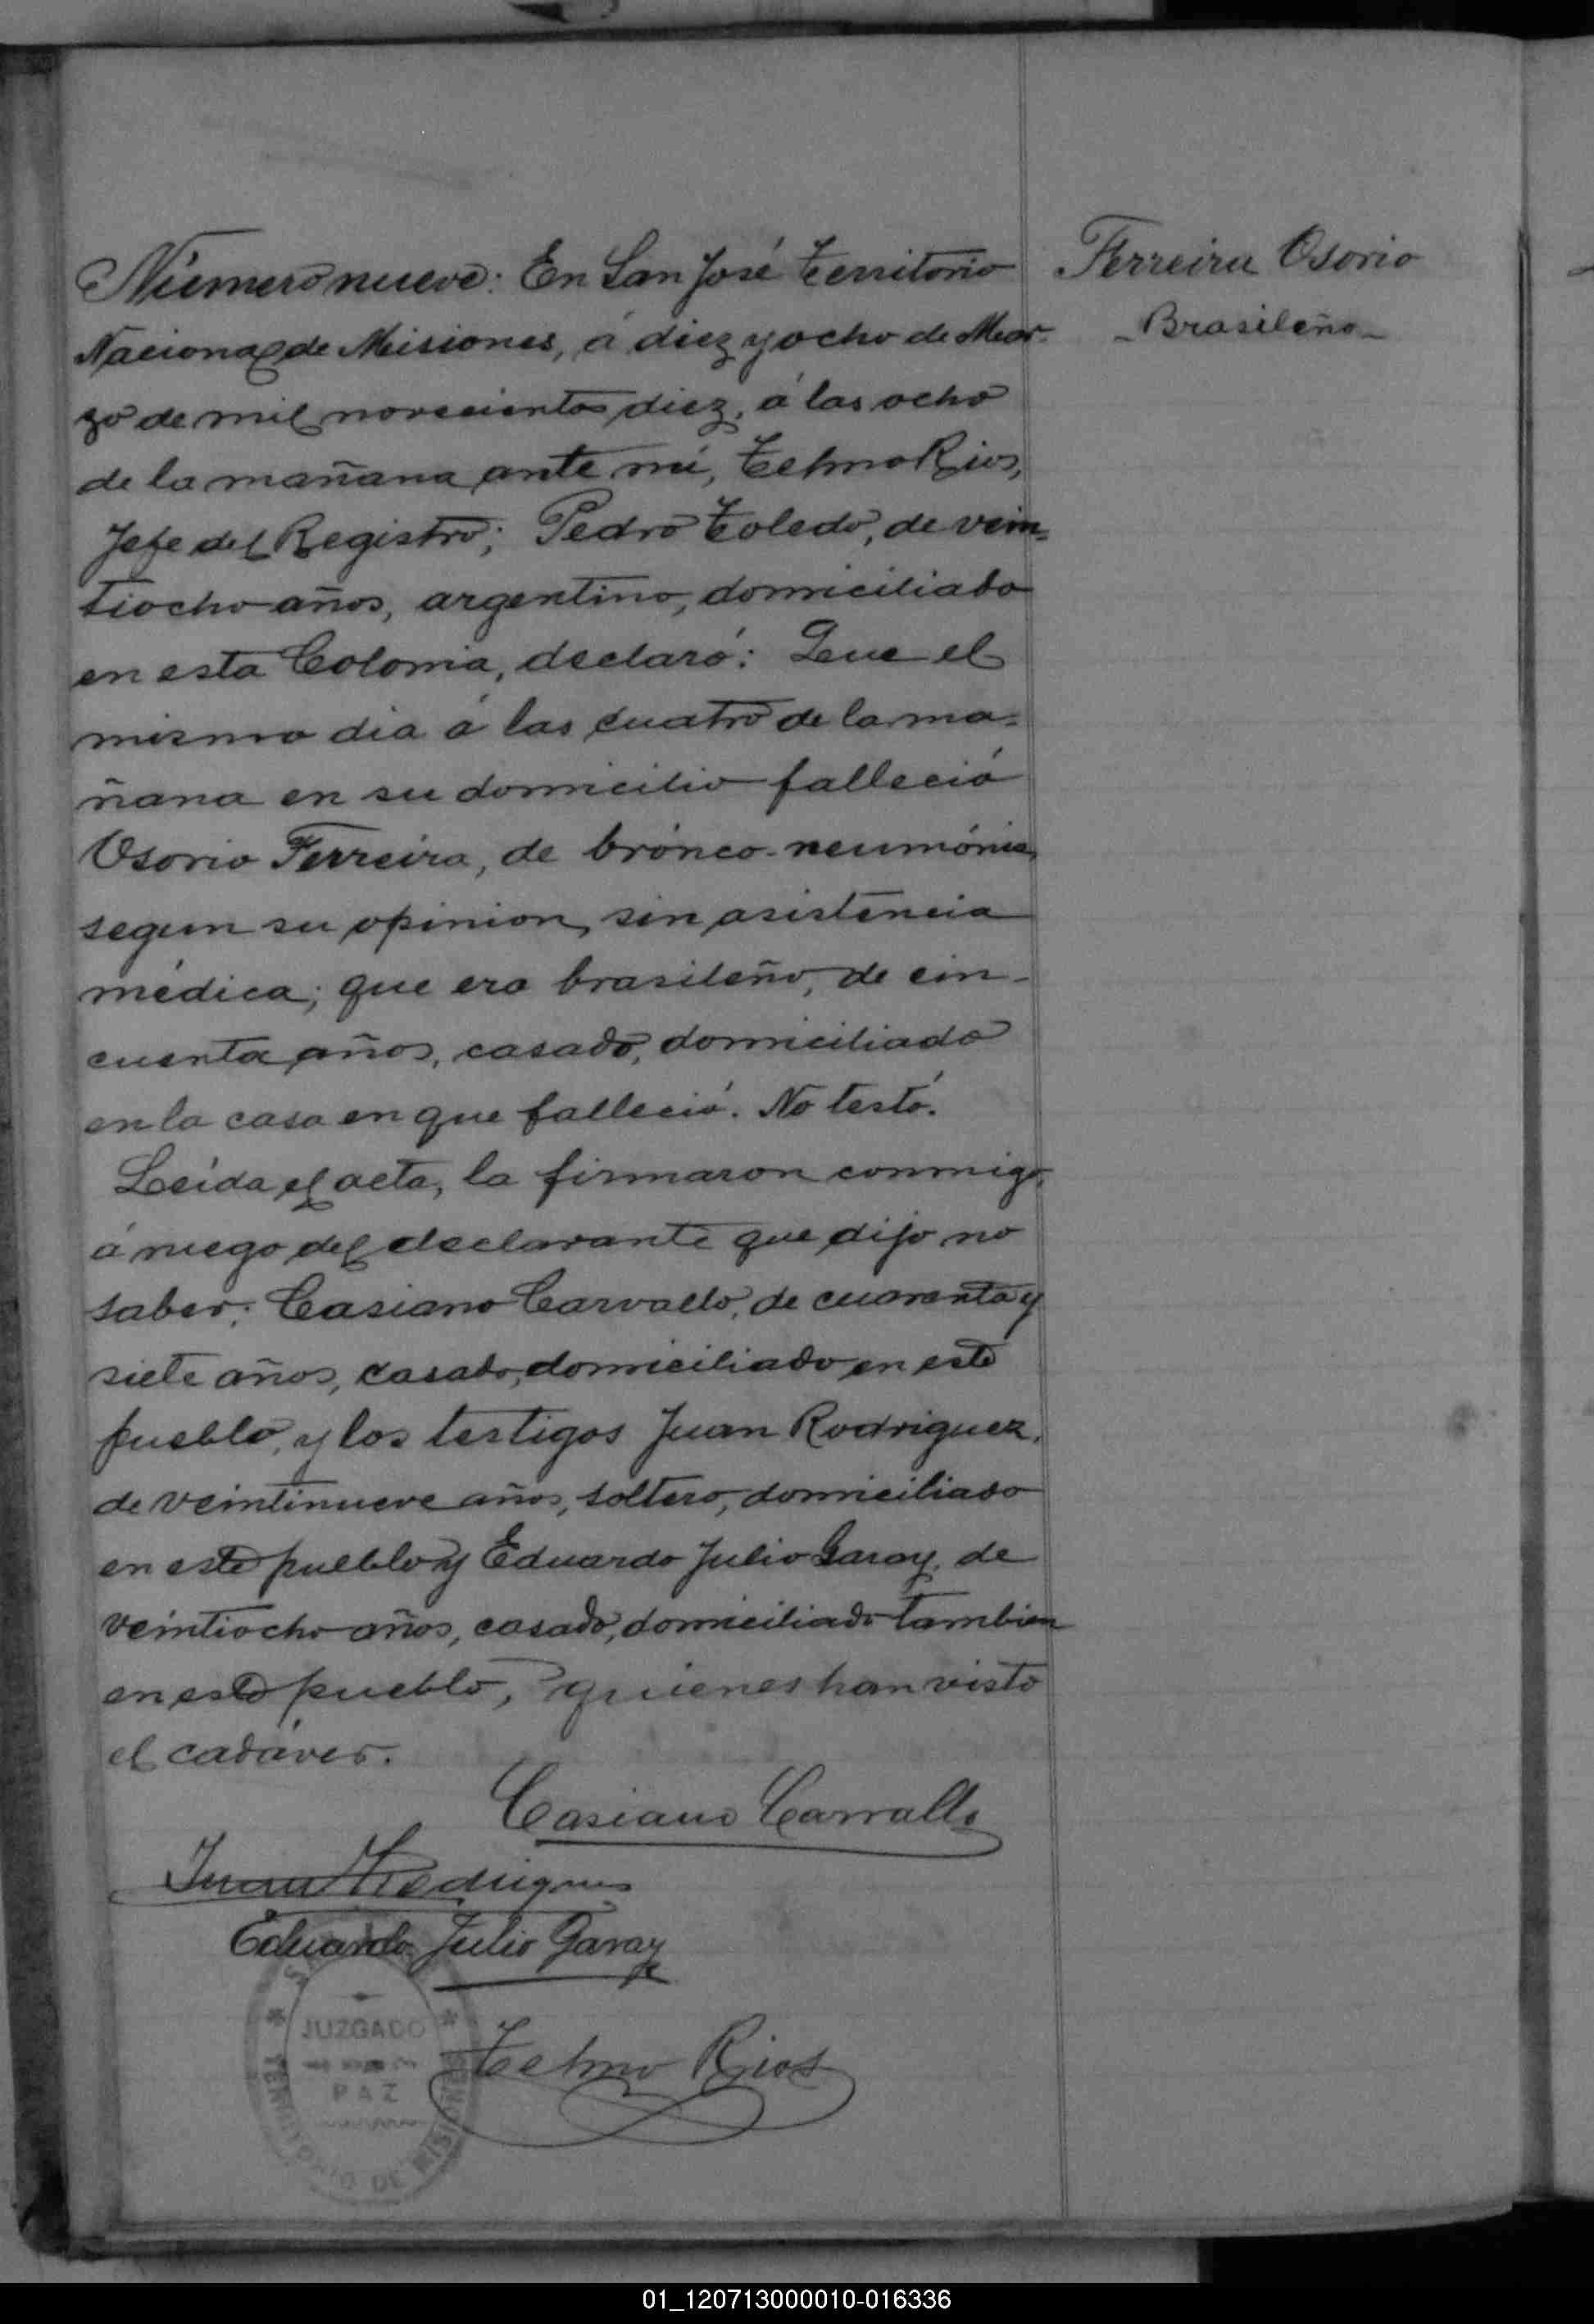 Número nueve: En San José Territorio
Nacional de Misiones, á diez y ocho de Mar-
zo de mil novecientos diez, á las ocho
de la mañana ante mí, Telmo Rios,
Jefe del Registro; Pedro Toledo, de vein=
tiocho años, argentino, domiciliado
en esta Colonia, declaró: Que el
mismo dia á las cuatro de la ma=
ñana en su domicilio falleció
Osorio Ferreira, de brónco-neumónia,
segun su opinion, sin asistencia
médica; que era brasileño, de cin-
cuenta años, casado, domiciliado
en la casa en que falleció. No testó.
Leída el acta, la firmaron conmigo,
á ruego del declarante que dijo no
saber; Casiano Carvallo, de cuarenta y
siete años, casado, domiciliado en este
pueblo, y los testigos Juan Rodriguez,
de veintinueve años, soltero, domiciliado
en este pueblo y Eduardo Julio Garay, de
veintiocho años, casado, domiciliado tambien
en este pueblo, quienes han visto
el cadáver.
Casiano Carvallo
Juan Rodrigues
Eduardo Julio Garay
Telmo Rios
JUZGADO
PAZ
TERRITORIO DE MISIONES
Ferreira Osorio
-Brasileño-
01_120713000010-016336